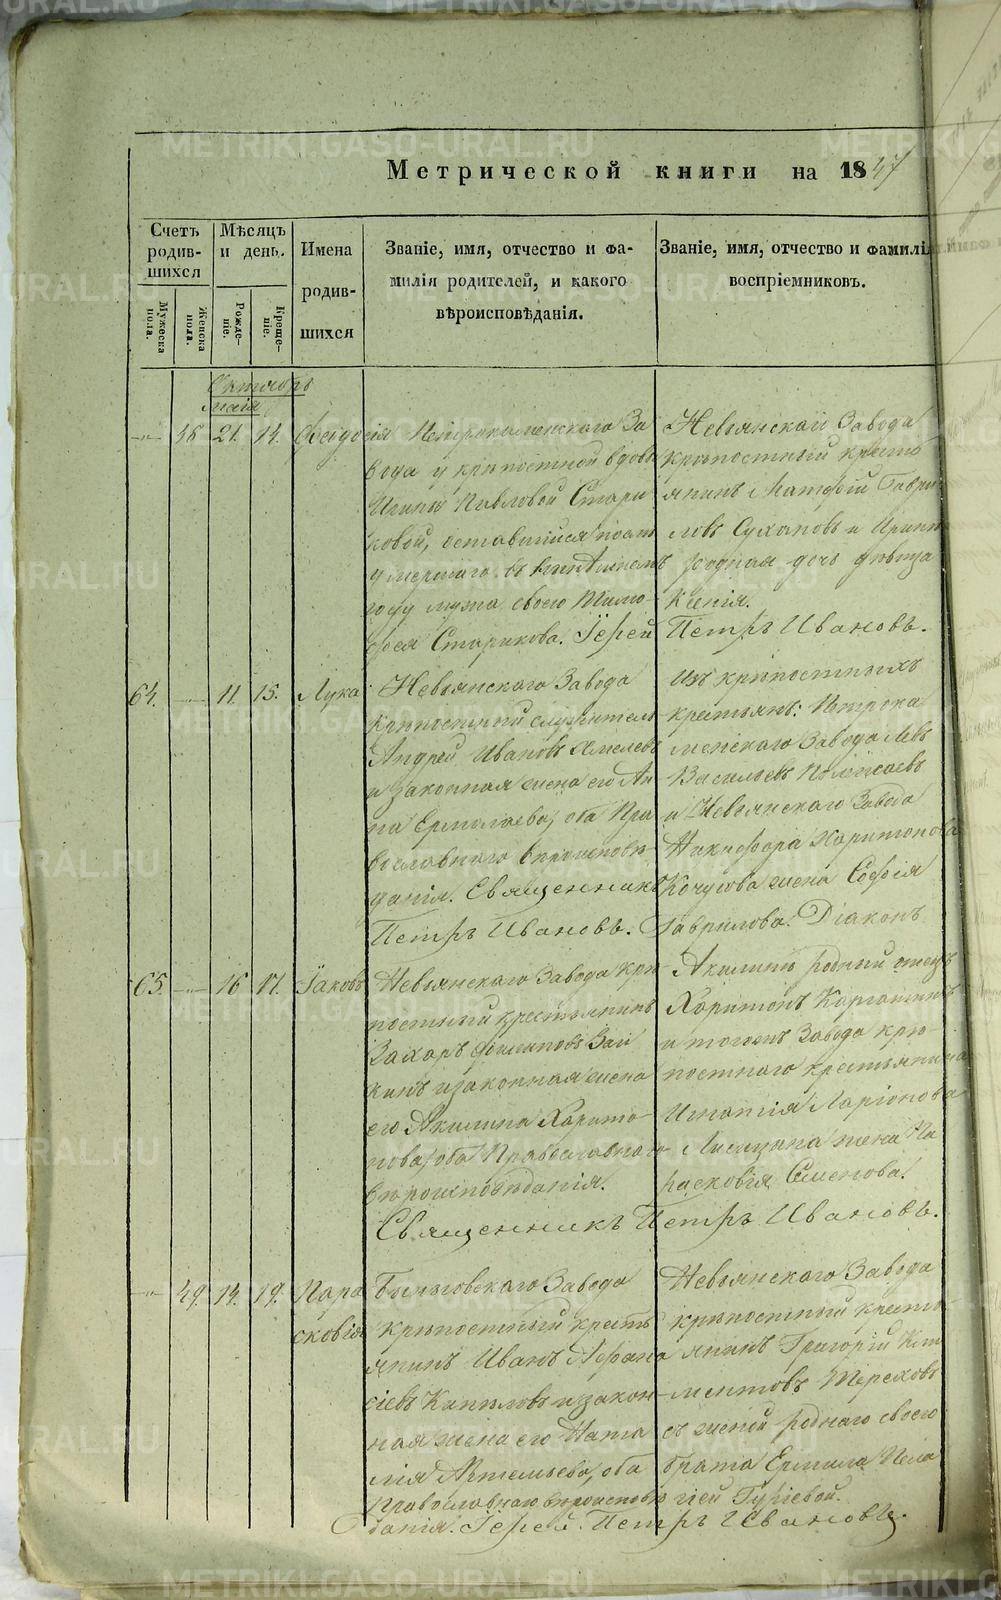 METRIKI.GASO-URAL.RU
Метрической книги на 1847
Счетъ родив-шихся
Мужеска пола.
Женска пола.
Мѣсяцъ и день.
Рожде-ніе.
Креще-ніе.
Имена родив-шихся
Званіе, имя, отчество и фа-
милія родителей, и какого
вѣроисповѣданія.
Званіе, имя, отчество и фамилія
воспріемниковъ.
Октябрь
48 21. 14. Феодосія
Петрокаменскаго За
вода у крѣпостной вдовы
Павловой Стари
ковой, оставшейся по
умершаго въ
году мужа своего Тимо-
фея Старикова. Іерей
Невьянскаго Завода
крѣпостный кресть
янинъ Матфій Гаври
ловъ Сухановъ и
родная дочь дѣвица
Ксенія.
Петръ Ивановъ.
64. 11. 15. Лука
Невьянскаго Завода
крѣпостный служитель
Андрей Ивановъ
и законная жена его Ан
на Ермолаева, оба Пра
вославнаго вѣроисповѣ
данія. Священникъ
Петръ Ивановъ.
Изъ крѣпостныхъ
крестьянъ: Петрока
менскаго Завода Левъ
Васильевъ
и Невьянскаго Завода
Никифора Харитонова
жена Софія
Гаврилова. Діаконъ
65. 16. 17. Іаковъ
Невьянскаго Завода крѣ
постный крестьянинъ
Захаръ Филиповъ Заи
кинъ и законная жена
его Акилина Харито
нова, оба Православнаго
вѣроисповѣданія.
Акилинѣ родный отецъ
Харитонъ
и тогоже Завода крѣ
постнаго крестьянина
Игнатія Ларіонова
Лисицына жена Па
расковія Семенова.
Священникъ Петръ Ивановъ.
49. 14. 19. Пара
сковія
Быньговскаго Завода
крѣпостный кресть
янинъ Иванъ Афана
сіевъ и закон
ная жена его Ната
лія Артемьева, оба
Православнаго вѣроисповѣ
данія. Іерей Петръ Ивановъ.
Невьянскаго Завода
крѣпостный кресть
янинъ Григорій Кли
ментовъ Тереховъ
съ женой роднаго своего
брата Ермила Пела
гіей Гуріевой.